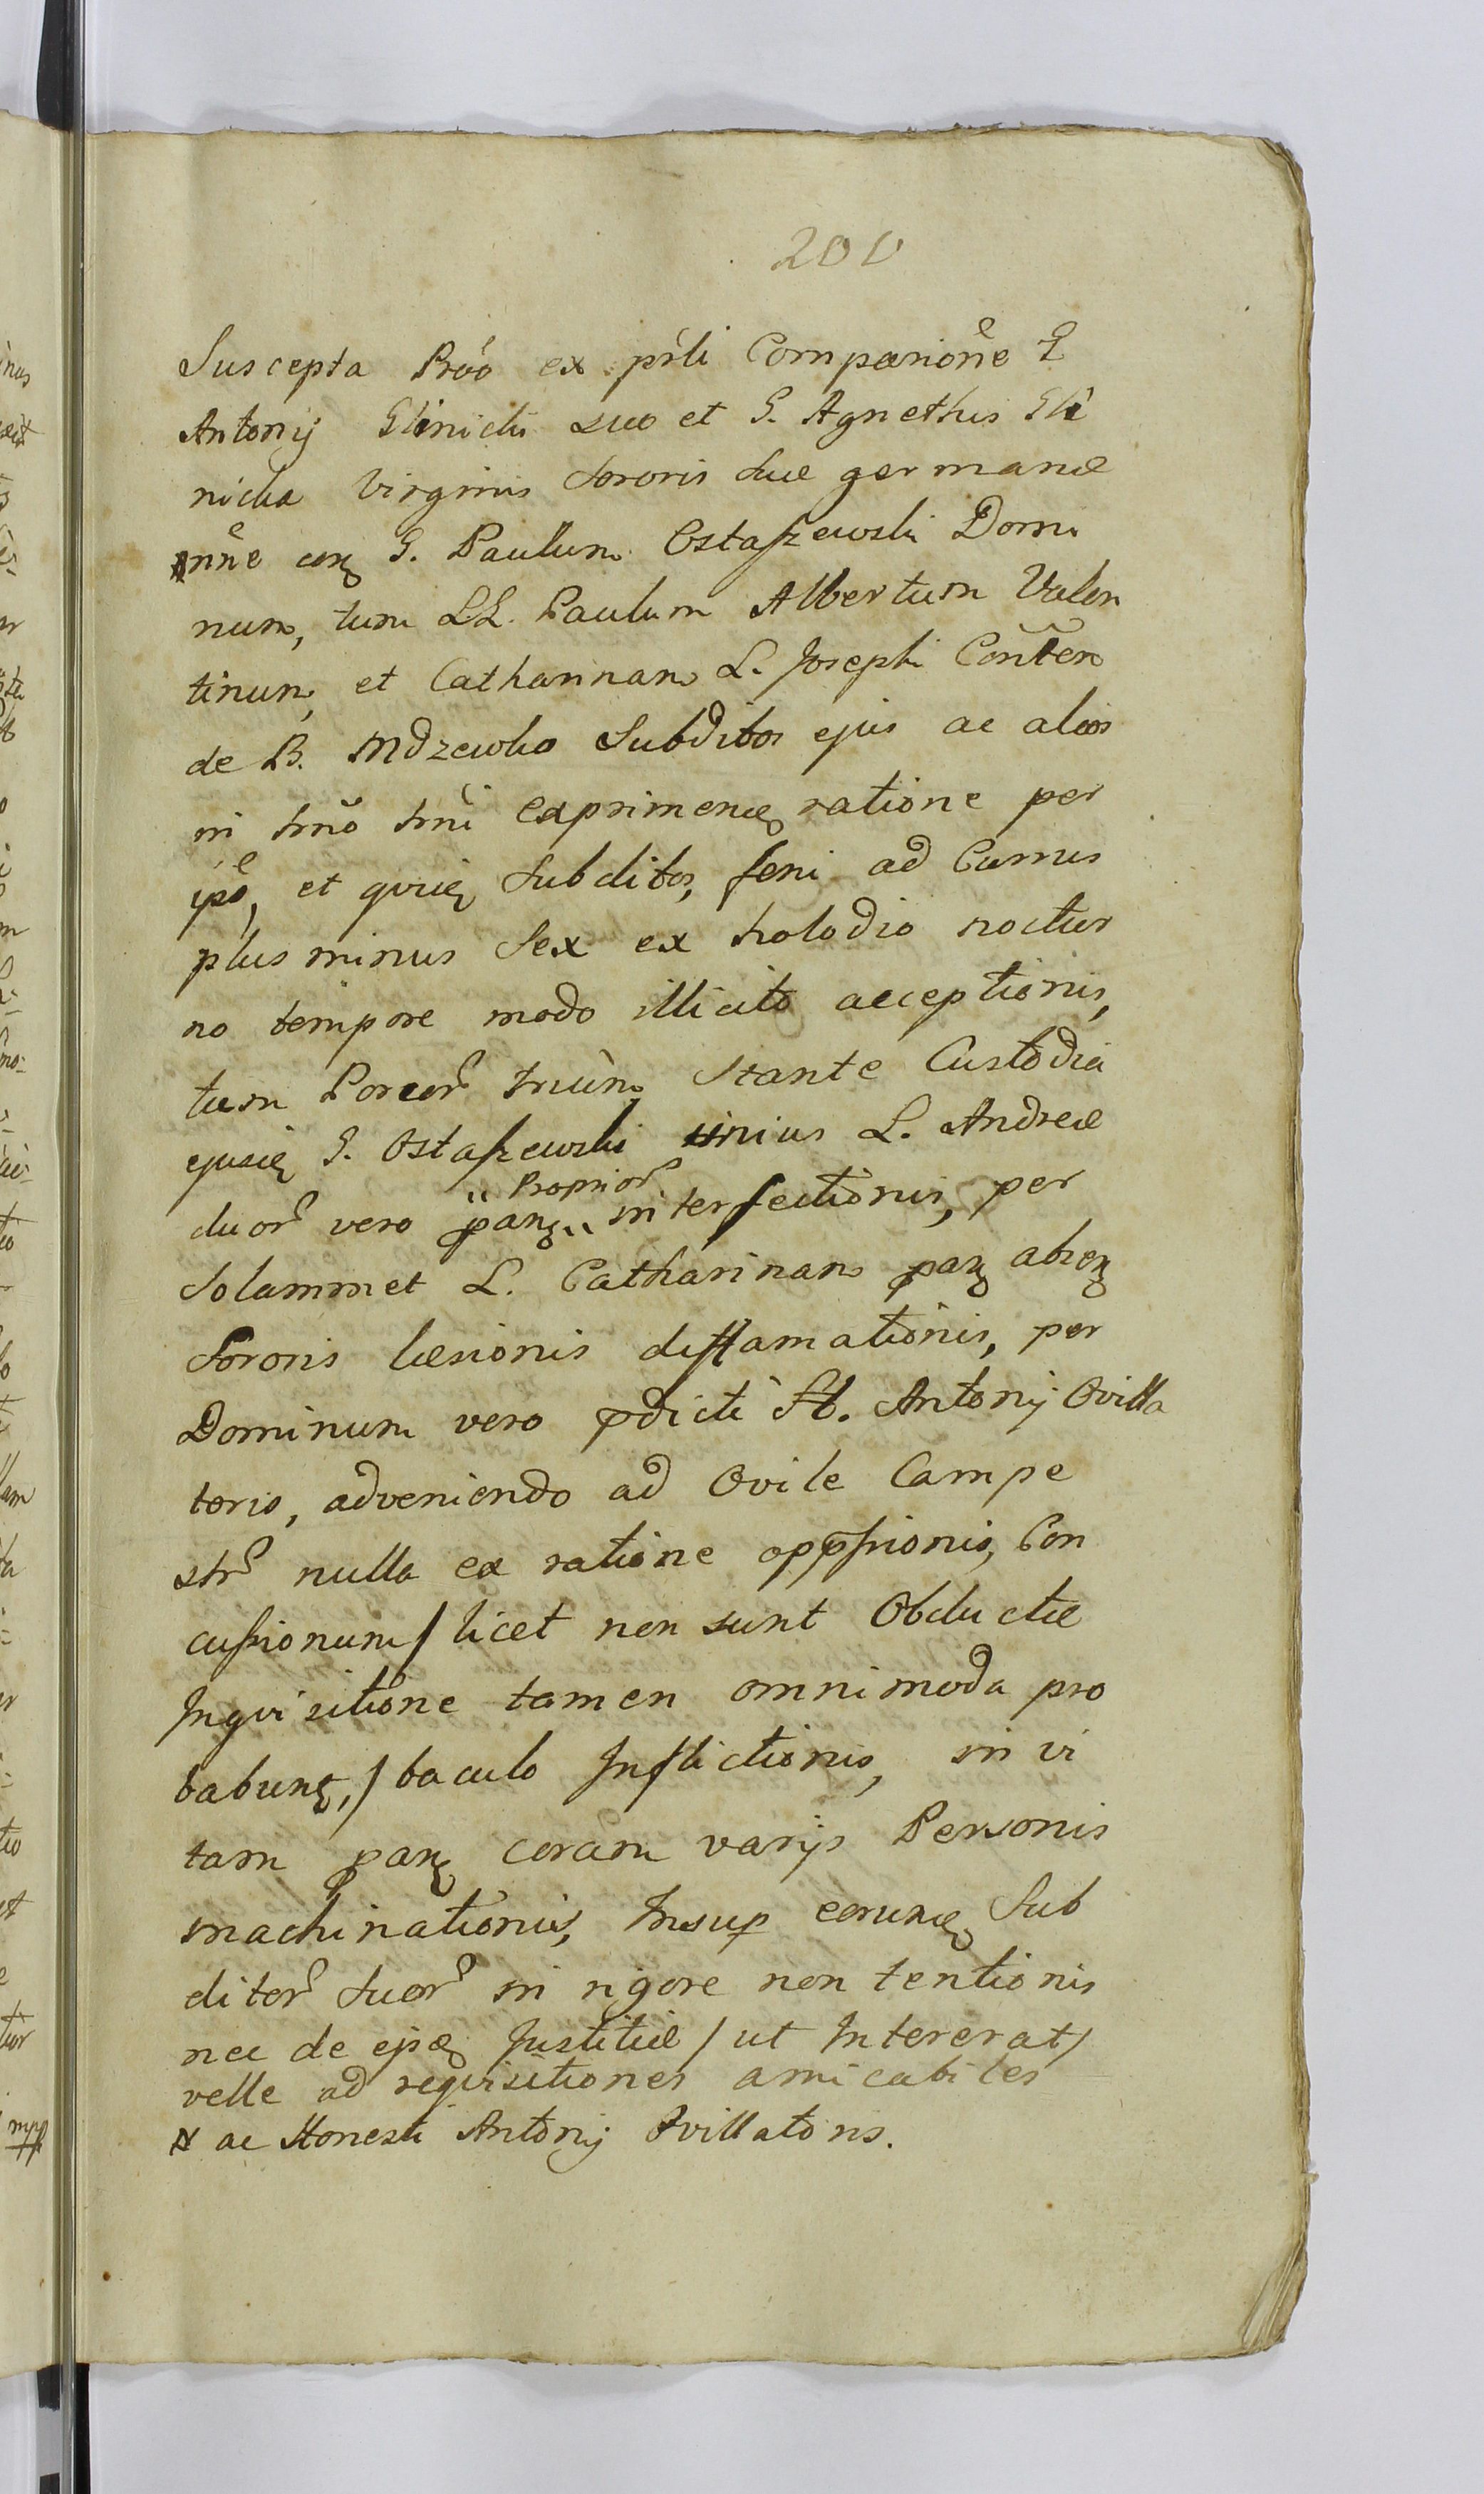 200
Suscepta Prõo ex pr̃li Compariõne G
Antonij Glinicki suo et G. Agnethis Gli
nicka Virginis Sororis suæ germanæ
nñe con G. Paulum Ostaszewski Domi
num, tum LL. Paulum Albertum Valen
tinum, et Catharinam L. Joseph Cõnten
de B. Mdzewko Subditos ejus ac alios
in tm̃o tm̃i exprimend ratione per
ip̃e, et gviq Subditos, feni ad Currus
plus minus Sex ex holodio noctur
no tempore modo illicito acceptionis,
tum Porcor trium stante Custodia
ejusd G. Ostaszewski unius L. Andreæ
" Proprior
duor vero pang " interfectionis, per
Solammet L. Catharinam pang
Sororis læsionis diffamationis, per
Dominum vero pdicti H. Antonij Ovilla
toris, adveniendo ad Ovile Campe
str nulla ex ratione oppssionis, Con
cussionum / licet non sunt Obductæ
Inqvisitione tamen omnimoda pro
babunt, / baculo Inflictionis, in vi
tam pang coram varijs Personis
machinationis, Insup eorund Sub
ditor suor in rigore non tentionis
nec de ejsd Justitiæ / ut Intererat /
velle ad reqvisitiones amicabiles
ac Honesti Antonij Ovillatoris.